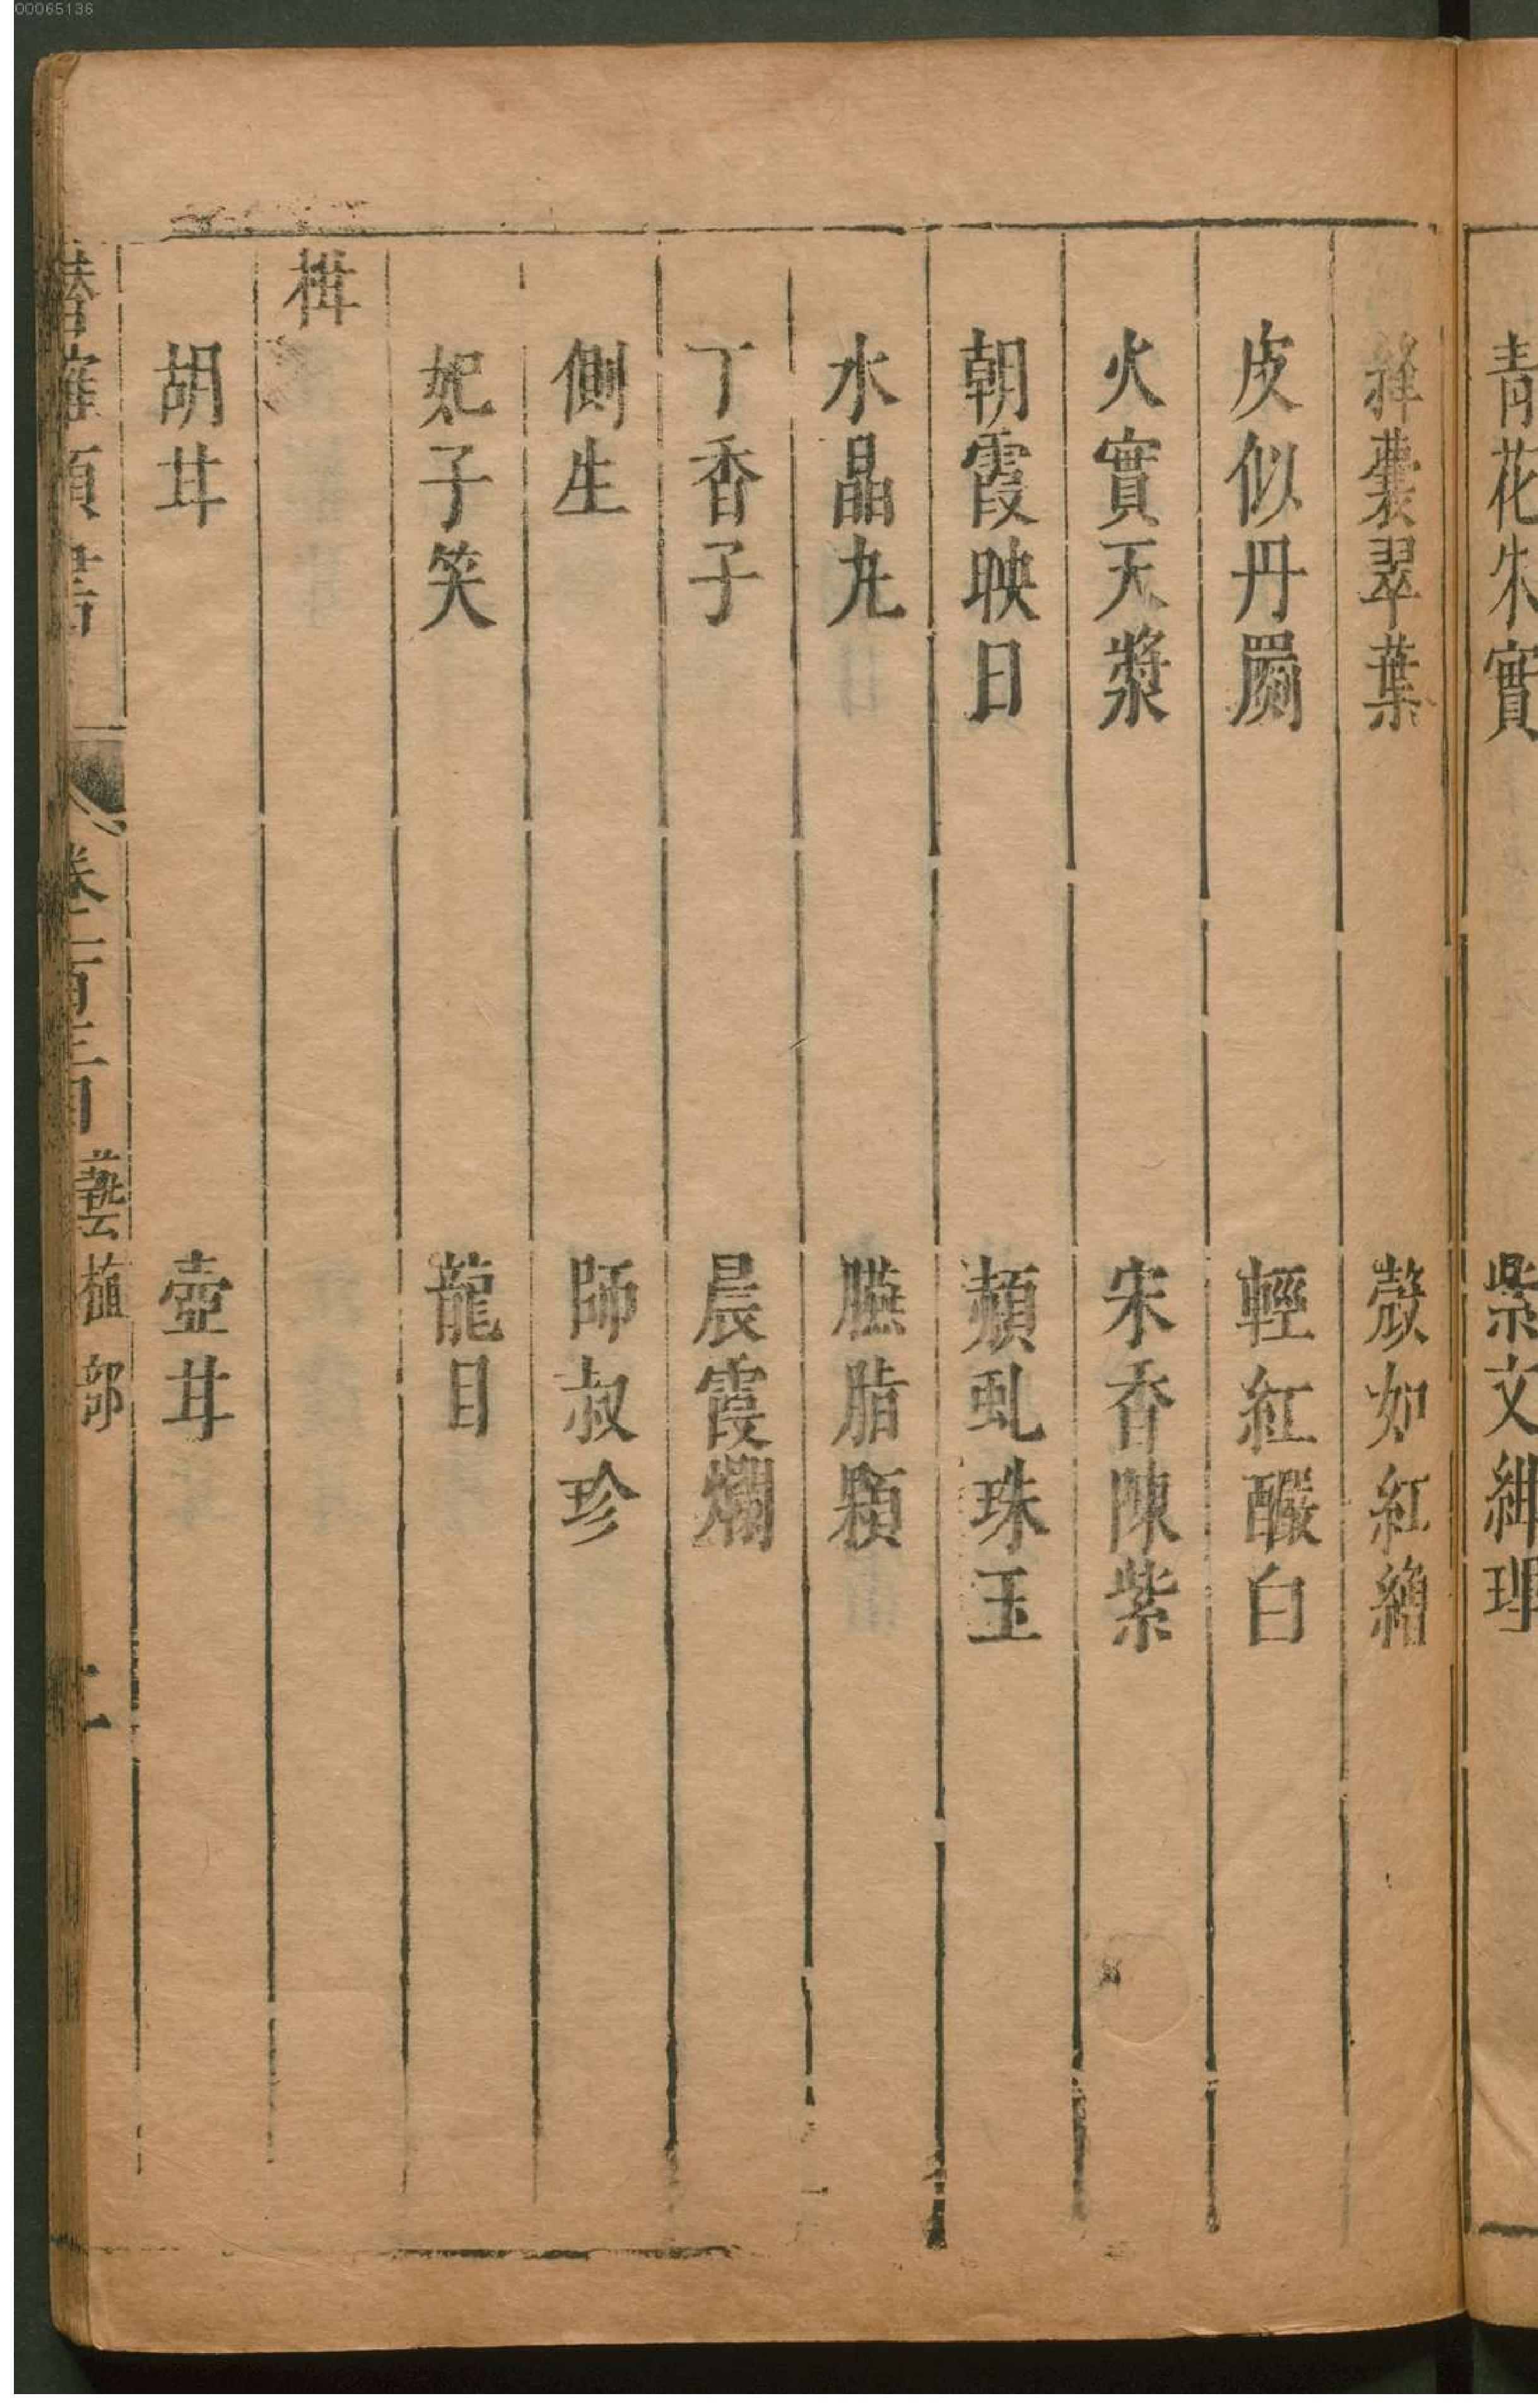 00065136
青花朱實 紫文紺理
絳囊翠葉 殼如紅繒
皮似丹罽 輕紅釅白
火實天漿 宋香陳紫
朝霞映日 頳虬珠玉
水晶丸 臙脂顆
丁香子 晨霞爛
側生 師叔珍
妃子笑 龍目
柑
胡甘 壺甘
類書 藝植部 二